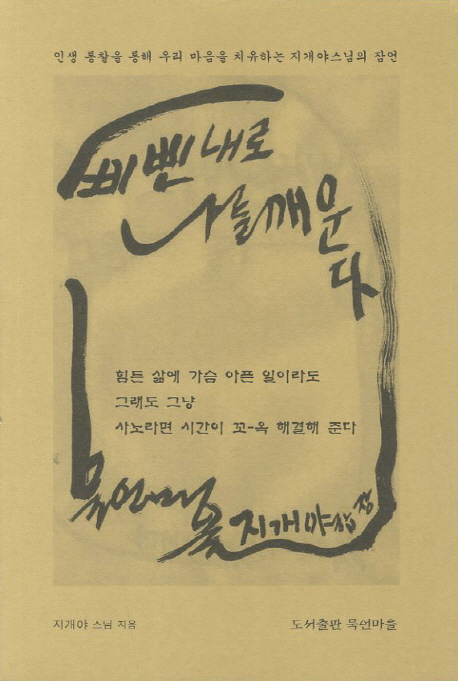 인생 통찰을 통해 우리 마음을 치유하는 지개야스님의 잠언
삐삔 내로
나를 깨운다
힘든 삶에 가슴 아픈 일이라도
그래도 그냥
사노라면 시간이 꼬-옥 해결해 준다
묵언마을 지개야 합장
지개야 스님 지음
도서출판 묵언마을